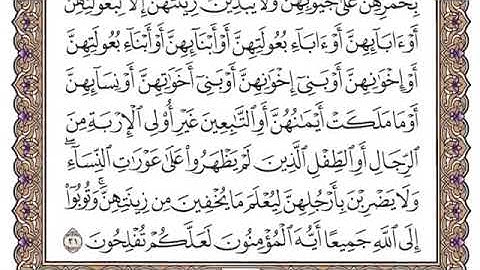 بِخُمُرِهِنَّ عَلَىٰ جُيُوبِهِنَّ وَلَا يُبْدِينَ زِينَتَهُنَّ إِلَّا لِبُعُولَتِهِنَّ
أَوْ ءَابَآئِهِنَّ أَوْ ءَابَآءِ بُعُولَتِهِنَّ أَوْ أَبْنَآئِهِنَّ أَوْ أَبْنَآءِ بُعُولَتِهِنَّ
أَوْ إِخْوَٰنِهِنَّ أَوْ بَنِىٓ إِخْوَٰنِهِنَّ أَوْ بَنِىٓ أَخَوَٰتِهِنَّ أَوْ نِسَآئِهِنَّ
أَوْ مَا مَلَكَتْ أَيْمَٰنُهُنَّ أَوِ ٱلتَّٰبِعِينَ غَيْرِ أُو۟لِى ٱلْإِرْبَةِ مِنَ
ٱلرِّجَالِ أَوِ ٱلطِّفْلِ ٱلَّذِينَ لَمْ يَظْهَرُوا۟ عَلَىٰ عَوْرَٰتِ ٱلنِّسَآءِ ۖ
وَلَا يَضْرِبْنَ بِأَرْجُلِهِنَّ لِيُعْلَمَ مَا يُخْفِينَ مِن زِينَتِهِنَّ ۚ وَتُوبُوٓا۟
إِلَى ٱللَّهِ جَمِيعًا أَيُّهَ ٱلْمُؤْمِنُونَ لَعَلَّكُمْ تُفْلِحُونَ ٣١